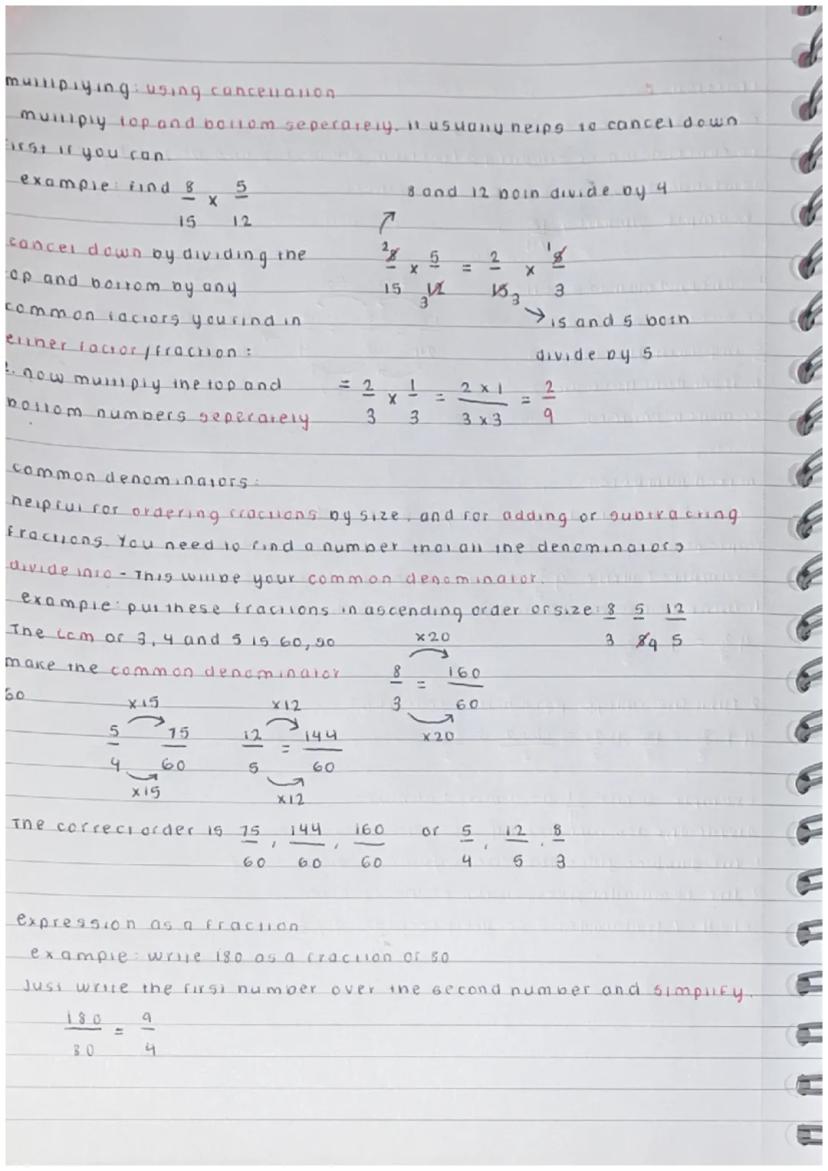 multiplying: using cancellation
multiply top and bottom seperately. it usually helps to cancel down
first if you can.
example: find 8/15 x 5/12
8 and 12 both divide by 4
cancel down by dividing the
top and bottom by any
common factors you find in
either factor/fraction:
2 8/15 x 5/12 3 = 2/15 3 x 1 5/3
15 and 5 both
divide by 5
2. now multiply the top and
bottom numbers seperately
= 2/3 x 1/3 = 2x1/3x3 = 2/9
common denominators:
helpful for ordering fractions by size, and for adding or subtracting
fractions. You need to find a number that all the denominators
divide into - This will be your common denominator.
example: put these fractions in ascending order of size: 8/3 5/4 12/5
The lcm of 3, 4 and 5 is 60, so
make the common denominator
60
x20
8/3 = 160/60
x20
x15
5/4 75/60
x15
x12
12/5 = 144/60
x12
The correct order is 75/60, 144/60, 160/60 or 5/4, 12/5, 8/3
expression as a fraction
example: write 180 as a fraction of 80
Just write the first number over the second number and simplify.
180/80 = 9/4